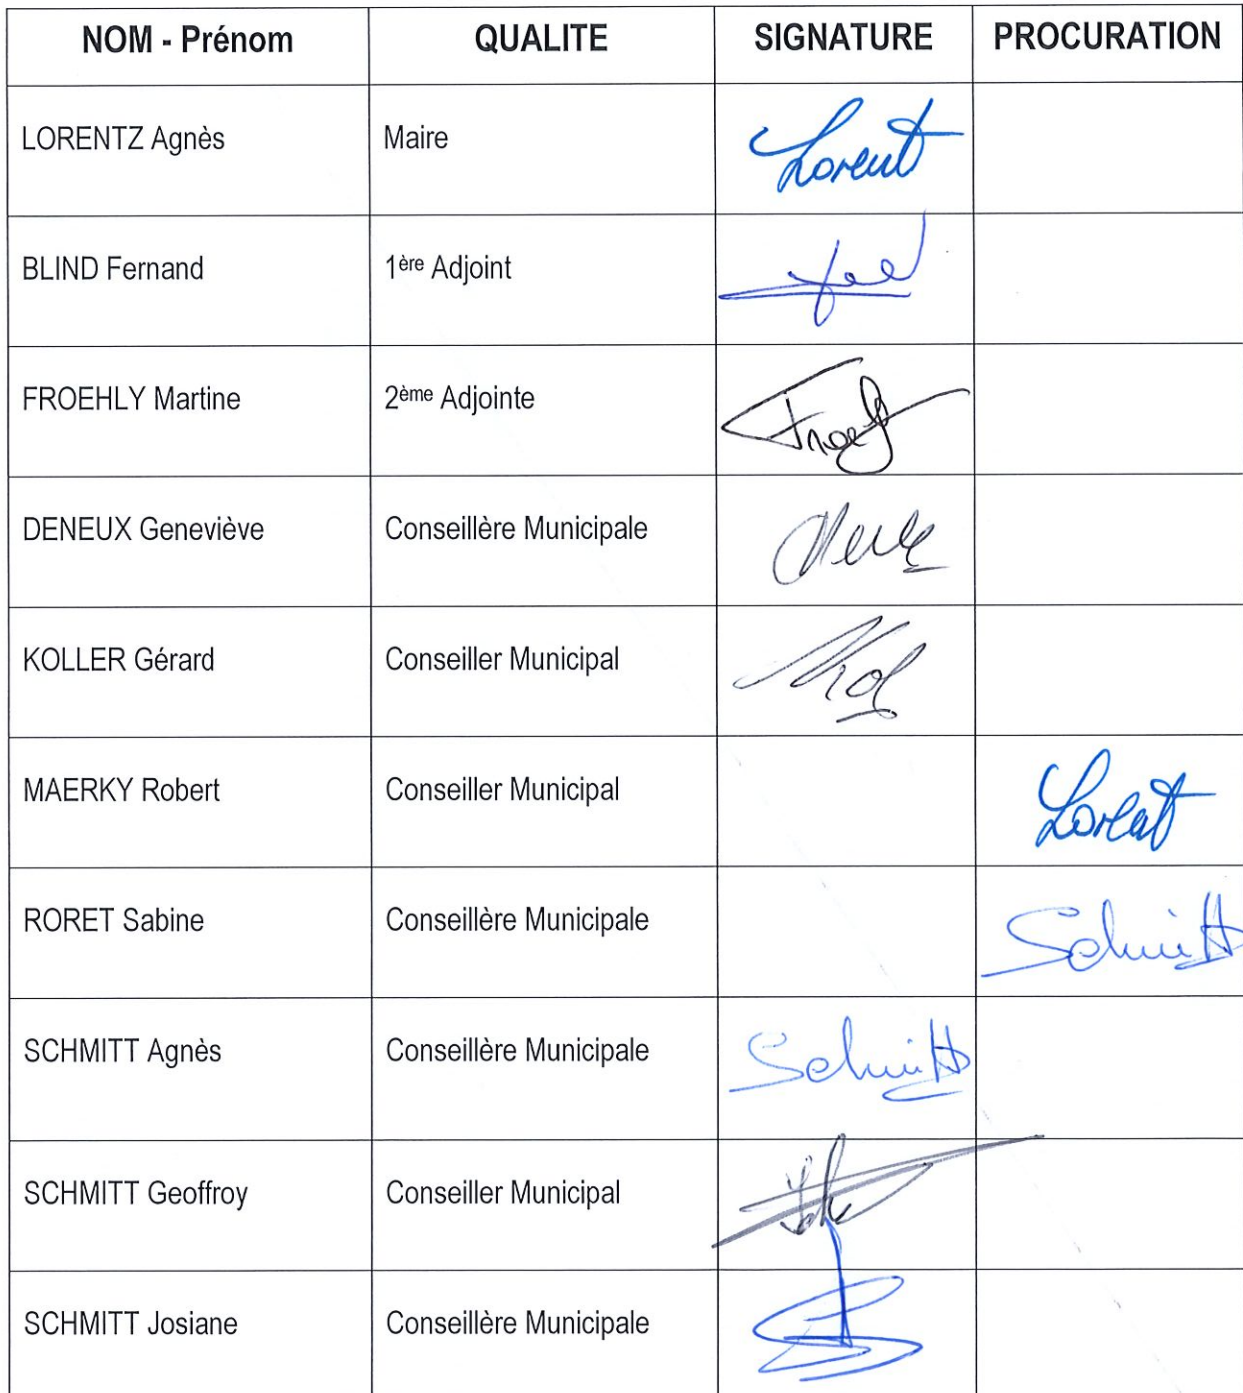 NOM - Prénom QUALITE SIGNATURE PROCURATION
LORENTZ Agnès Maire Lorentz
BLIND Fernand 1ère Adjoint
FROEHLY Martine 2ème Adjointe
DENEUX Geneviève Conseillère Municipale
KOLLER Gérard Conseiller Municipal
MAERKY Robert Conseiller Municipal Lorentz
RORET Sabine Conseillère Municipale Schmitt
SCHMITT Agnès Conseillère Municipale Schmitt
SCHMITT Geoffroy Conseiller Municipal
SCHMITT Josiane Conseillère Municipale